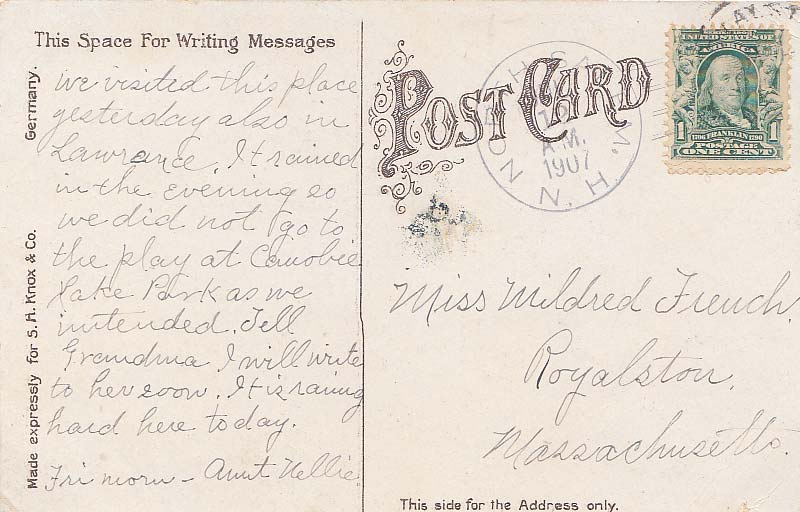 This Space For Writing Messages
We visited this place
yesterday also in
Lawrence. It rained
in the evening so
we did not go to
the play at Canobie
Lake Park as we
intended. Tell
Grandma I will write
to her soon. It is raining
hard here today.
Fri morn - Aunt Nellie
Made expressly for S. H. Knox & Co. Germany.
POST CARD
A.M.
1907
N. H.
UNITED STATES OF
AMERICA
1 1706 FRANKLIN 1790 1
POSTAGE
ONE CENT
Miss Mildred French,
Royalston,
Massachusetts.
This side for the Address only.